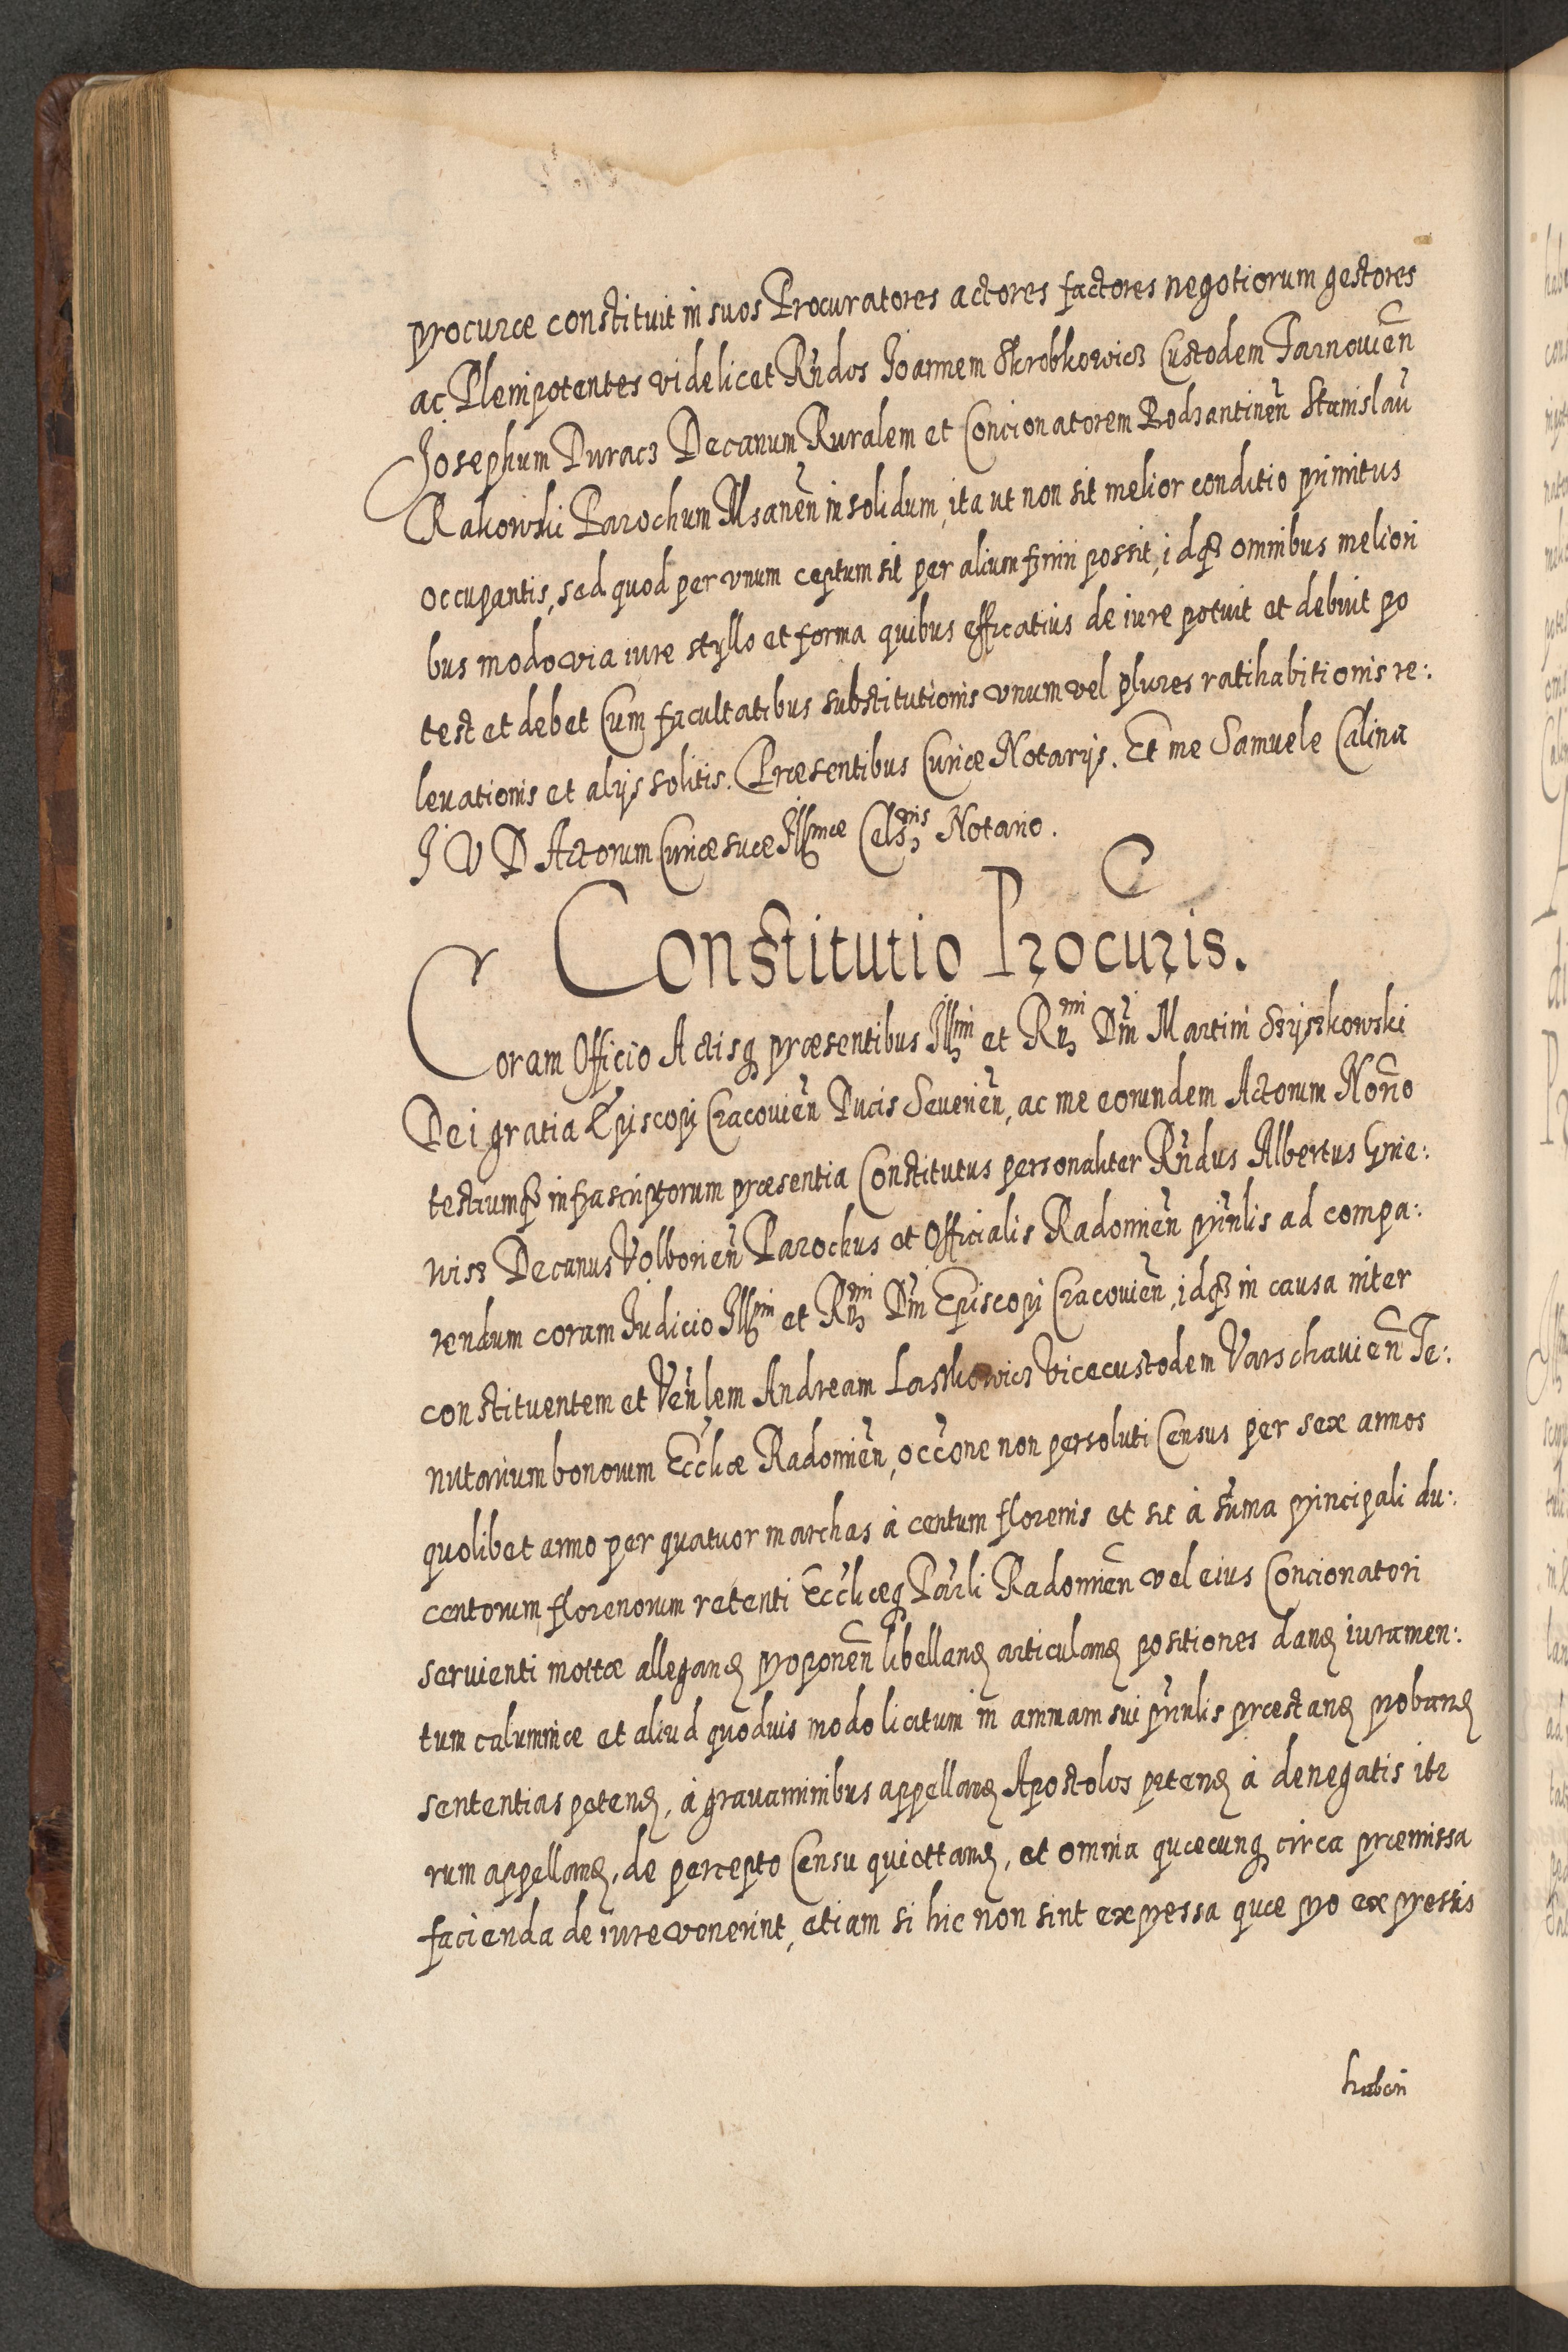 procuræ constituit in suos Procuratores actores factores negotiorum gestores
ac Plenipotentes videlicet Rñdos Joannem Skrobkowicz Custodem Tarnowieñ
Josephum Duracz Decanum Ruralem et Concionatorem Bodzantineñ Stanislaũ
Rakowski Parochum Msaneñ in solidum, ita ut non sit melior conditio primitus
occupantis, sed quod per vnum ceptum sit per alium finiri possit, idq̃ omnibus meliori
bus modo via iure styllo et forma quibus efficatius de iure potuit et debuit po
test et debet Cum facultatibus substitutionis vnum vel plures ratihabitionis re:
leuationis et alijs solitis. Præsentibus Curiæ Notarijs. Et me Samuele Calina
J V D Actorum Curiæ suæ Illmæ Celsnis Notario.
Constitutio Procuris.
Coram Officio Actisq præsentibus Illmi et Rmi Dñi Martini Szyszkowski
Dei gratia Episcopi Cracouieñ Ducis Seuerieñ, ac me eorundem Actorum Noño
testiumq̃ infrascriptorum præsentia Constitutus personaliter Rñdus Albertus Gnie:
wisz Decanus Volborieñ Parochus et Officialis Radomieñ prinlis ad compa:
rendum coram Judicio Illmi et Rmi Dñi Episcopi Cracouieñ, idq̃ in causa inter
constituentem et Veñlem Andream Laskowicz Vicecustodem Varschauieñ Te:
nutarium bonorum Ecclcæ Radomieñ, occone non persoluti Census per sex annos
quolibet anno per quatuor marchas à centum florenis et sic à sũma principali du:
centorum florenorum retenti Ecclcæq Parli Radomieñ vel eius Concionatori
seruienti mottæ allegand proponeñ libelland articuland positiones dand iuramen:
tum calumniæ et aliud quoduis modo licitum in animam sui prinlis præstand proband
sententias petend, à grauaminibus appelland Apostolos petend à denegatis ite
rum appelland, de percepto Censu quiettand, et omnia quæcunq circa præmissa
facienda de iure venerint, etiam si hic non sint expressa quæ pro expressis
haberi